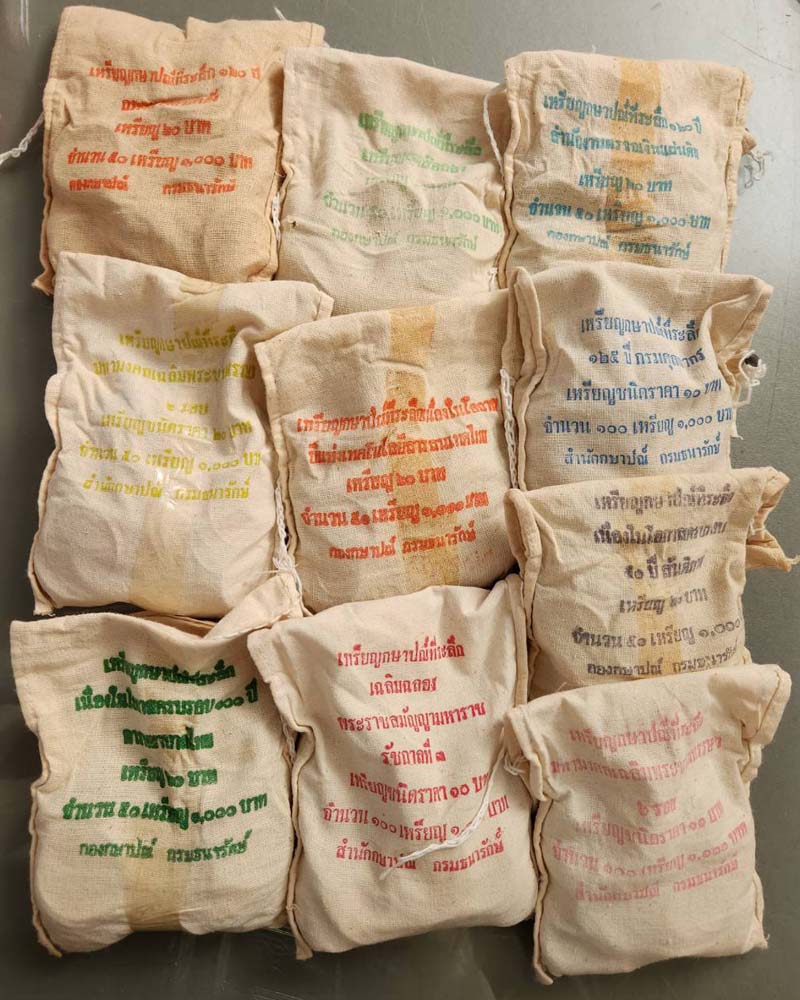 เหรียญกษาปณ์ที่ระลึก ๑๒๐ ปี
เหรียญ ๒๐ บาท
จำนวน ๕๐ เหรียญ ๑,๐๐๐ บาท
กองกษาปณ์ กรมธนารักษ์
เหรียญกษาปณ์ที่ระลึก
จำนวน ๕๐ เหรียญ ๑,๐๐๐ บาท
กองกษาปณ์ กรมธนารักษ์
เหรียญกษาปณ์ที่ระลึก ๑๒๐ ปี
สำนักงานตรวจเงินแผ่นดิน
เหรียญ ๒๐ บาท
จำนวน ๕๐ เหรียญ ๑,๐๐๐ บาท
กองกษาปณ์ กรมธนารักษ์
เหรียญกษาปณ์ที่ระลึก
มหามงคลเฉลิมพระชนมพรรษา
๒ รอบ
เหรียญชนิดราคา ๒๐ บาท
จำนวน ๕๐ เหรียญ ๑,๐๐๐ บาท
สำนักกษาปณ์ กรมธนารักษ์
เหรียญกษาปณ์ที่ระลึกเนื่องในโอกาส
ปีแห่งเทคโนโลยีสารสนเทศไทย
เหรียญ ๒๐ บาท
จำนวน ๕๐ เหรียญ ๑,๐๐๐ บาท
กองกษาปณ์ กรมธนารักษ์
เหรียญกษาปณ์ที่ระลึก
๑๒๕ ปี กรมศุลกากร
เหรียญชนิดราคา ๑๐ บาท
จำนวน ๑๐๐ เหรียญ ๑,๐๐๐ บาท
สำนักกษาปณ์ กรมธนารักษ์
เหรียญกษาปณ์ที่ระลึก
เนื่องในโอกาสครบรอบ
๕๐ ปี
เหรียญ ๒๐ บาท
จำนวน ๕๐ เหรียญ ๑,๐๐๐
กองกษาปณ์ กรมธนารักษ์
เหรียญกษาปณ์ที่ระลึก
เนื่องในโอกาสครบรอบ ๑๐๐ ปี
เหรียญ ๒๐ บาท
จำนวน ๕๐ เหรียญ ๑,๐๐๐ บาท
กองกษาปณ์ กรมธนารักษ์
เหรียญกษาปณ์ที่ระลึก
เฉลิมฉลอง
พระราชสมัญญามหาราช
รัชกาลที่ ๓
เหรียญชนิดราคา ๑๐ บาท
จำนวน ๑๐๐ เหรียญ บาท
สำนักกษาปณ์ กรมธนารักษ์
เหรียญกษาปณ์ที่ระลึก
มหามงคลเฉลิมพระชนมพรรษา
๖ รอบ
เหรียญชนิดราคา ๑๐ บาท
จำนวน ๑๐๐ เหรียญ ๑,๐๐๐ บาท
สำนักกษาปณ์ กรมธนารักษ์